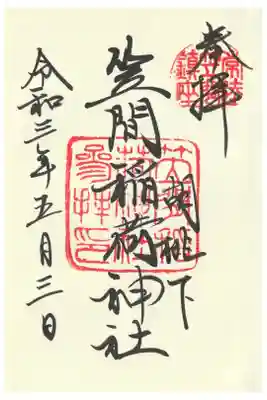 奉拝
胡桃下
笠間稲荷神社
令和三年五月三日